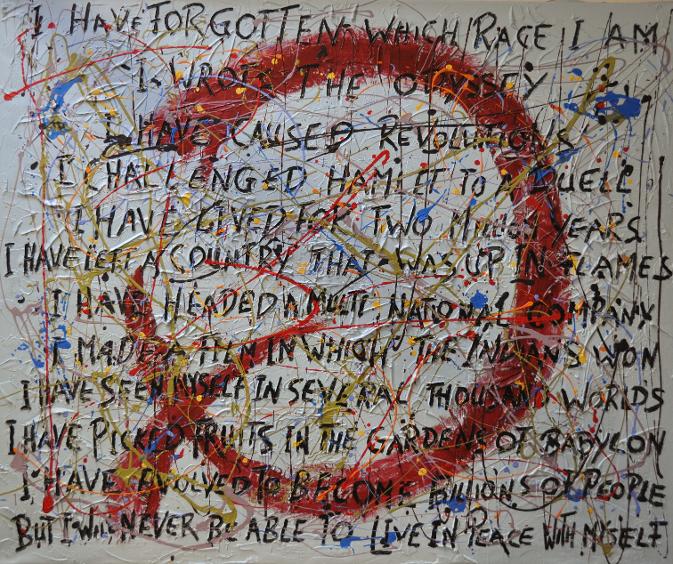 I HAVE FORGOTTEN WHICH RACE I AM
I WROTE THE ODYSSEY
I HAVE CAUSED REVOLUTIONS
I CHALLENGED HAMLET TO A DUELL
I HAVE LIVED FOR TWO MILLION YEARS
I HAVE LEFT A COUNTRY THAT WAS UP IN FLAMES
I HAVE HEADED A MULTI NATIONAL COMPANY
I MADE A FILM IN WHICH THE INDIANS WON
I HAVE SEEN MYSELF IN SEVERAL THOUSAND WORLDS
I HAVE PICKED FRUITS IN THE GARDENS OF BABYLON
I HAVE EVOLVED TO BECOME BILLIONS OF PEOPLE
BUT I WILL NEVER BE ABLE TO LIVE IN PEACE WITH MYSELF